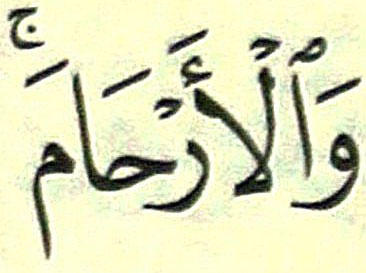 وَٱلْأَرْحَامَ ۚ